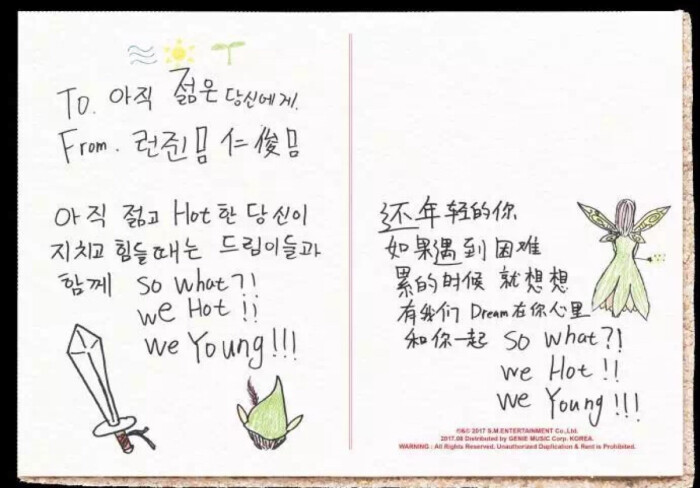 To. 아직 젊은 당신에게.
From. 런쥔몸 仁俊몸
아직 젊고 Hot한 당신이
지치고 힘들때는 드림이들과
함께 so what?!
we Hot!!
we Young!!!
还年轻的你
如果遇到困难
累的时候 就想想
有我们 Dream 在你心里
和你一起 so what?!
we Hot!!
we Young!!!
℗&© 2017 S.M.ENTERTAINMENT Co.,Ltd.
2017.08 Distributed by GENIE MUSIC Corp. KOREA.
WARNING : All Rights Reserved. Unauthorized Duplication & Rent is Prohibited.